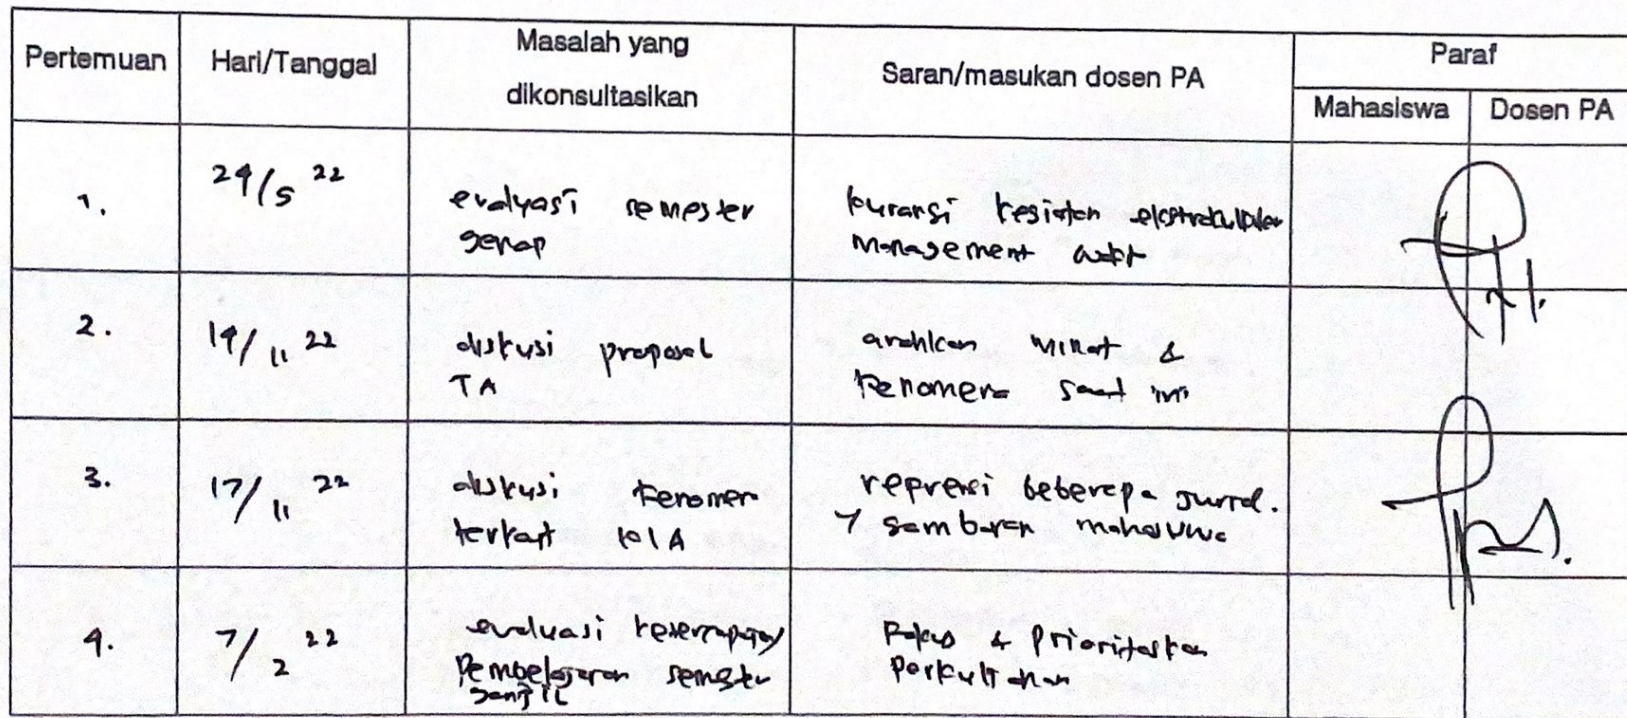 Pertemuan
Hari/Tanggal
Masalah yang
dikonsultasikan
Saran/masukan dosen PA
Paraf
Mahasiswa
Dosen PA
1.
24/5 22
evaluasi semester
genap
kurangi kegiatan ekstrakulikuler
management
2.
14/11 22
diskusi proposal
TA
arahkan minat &
fenomena saat ini
3.
17/11 22
diskusi fenomen
terkait
beberapa jurnal.
mahasiswa
4.
7/2 22
evaluasi
Pembelajaran semester
Ganjil
Fokus & prioritaskan
perkuliahan